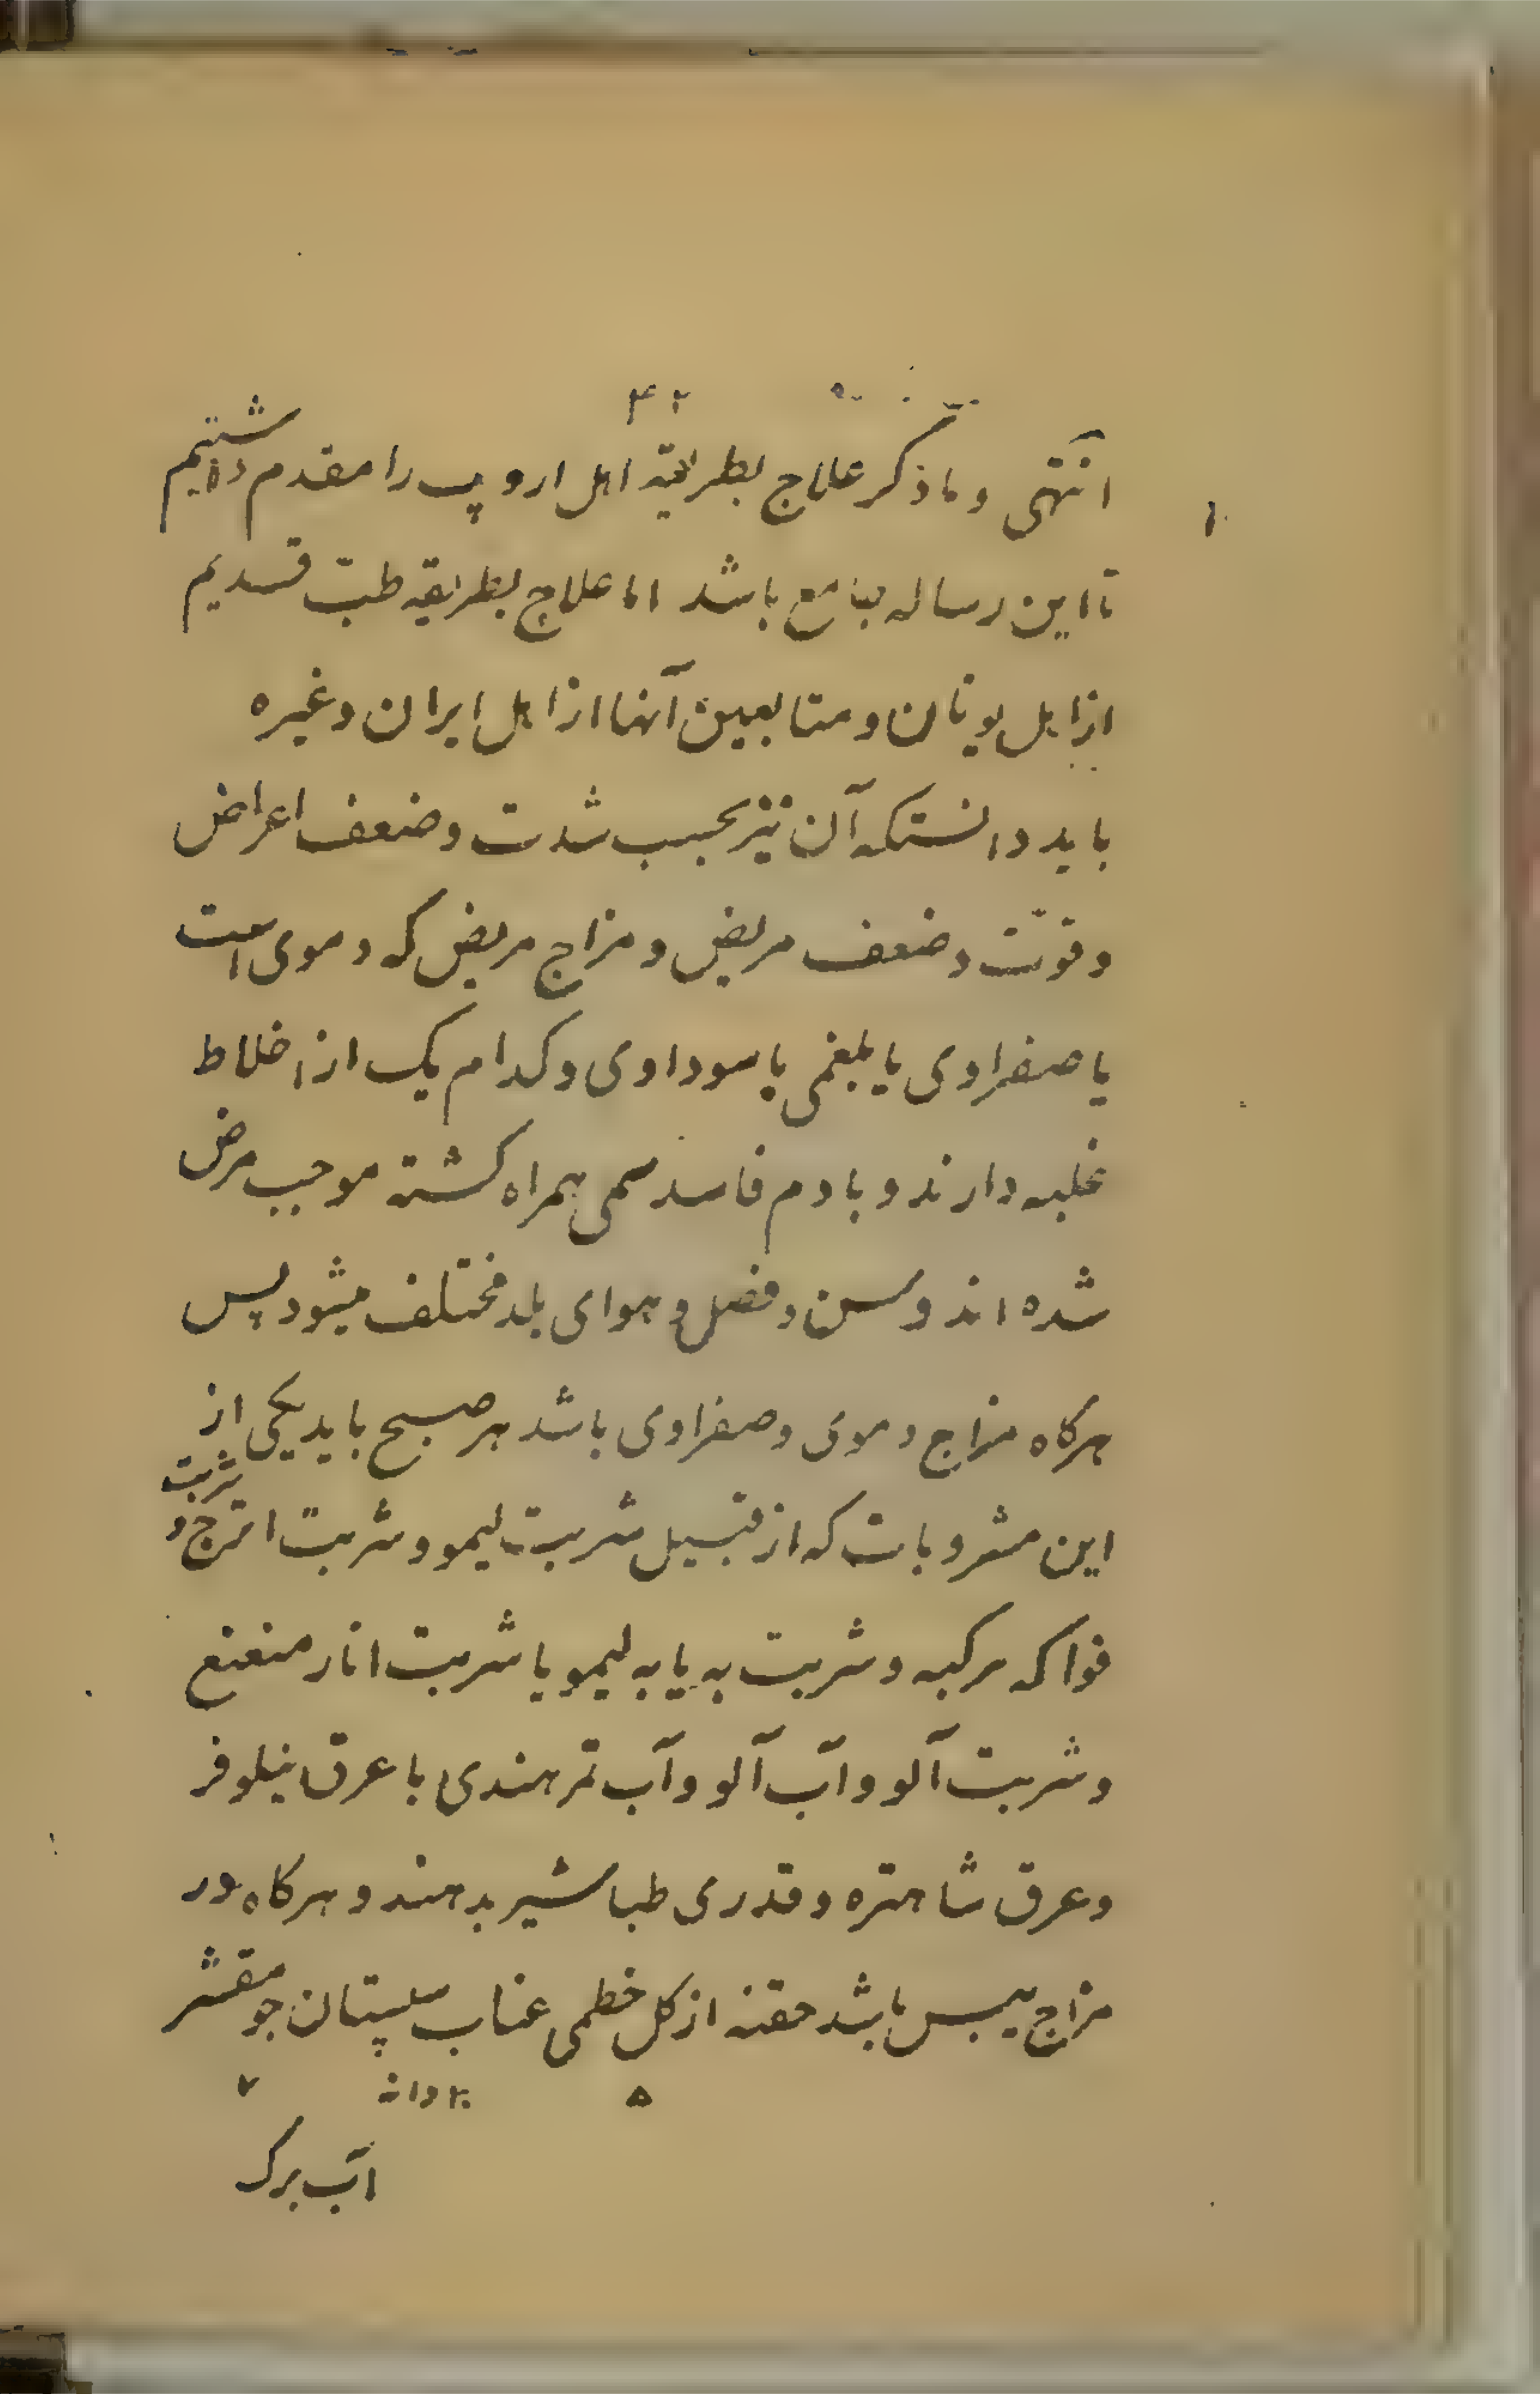 ۴۲
انتهی و ما ذکر علاج بطریقه اهل اروپ را مقدم داشتیم
تا این رساله جامع باشد اما علاج بطریقه طبّ قدیم
از اهل یونان و متابعین آنها از اهل ایران و غیره
باید دانستکه آن نیز بحسب شدت و ضعف اعراض
و قوّت و ضعف مریض و مزاج مریض که دموی است
یا صفراوی یا بلغمی یا سوداوی و کدام یک از اخلاط
غلبه دارند و با دم فاسد سمی همراه کشته موجب مرض
شده اند و سن و فصل و هوای بلد مختلف میشود پس
هرکاه مزاج دموی و صفراوی باشد هر صبح باید یکی از
این مشروبات که از قبیل شربت لیمو و شربت اترج و شربت
فواکه مرکبه و شربت به یا به لیمو یا شربت انار منعنع
و شربت آلو و آب آلو و آب تمر هندی با عرق نیلوفر
و عرق شاهتره و قدری طباشیر بدهند و هرکاه در
مزاج یبس باشد حقنه از کل خطمی عناب سپستان جو مقشر
۵ ۲۰ دانه ۷
آب برک